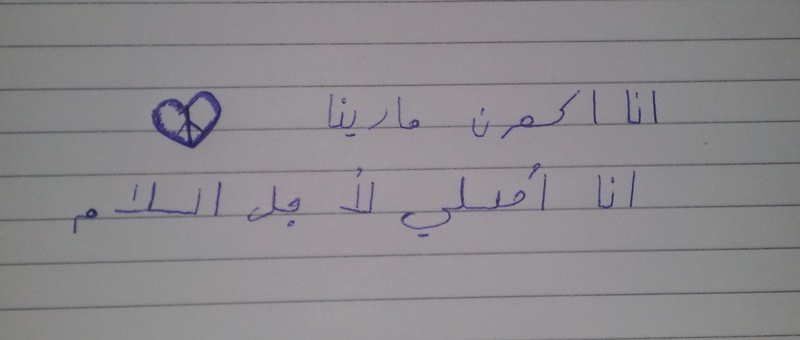 انا مارينا
انا أصلي لأجل السلام